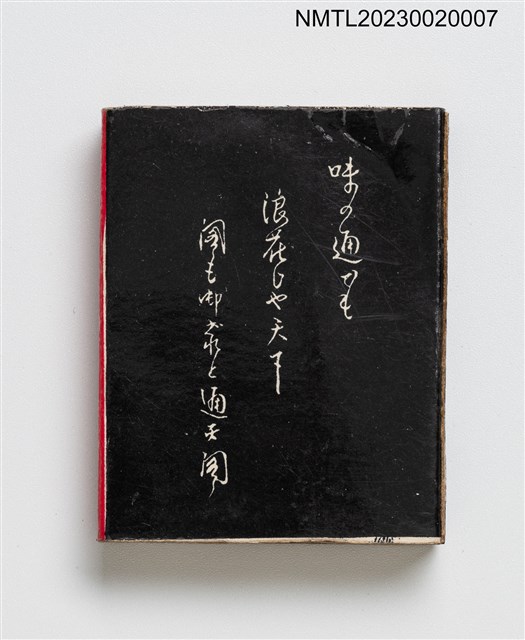 NMTL20230020007
味の通も
浪花じや天下
も御と通天閣